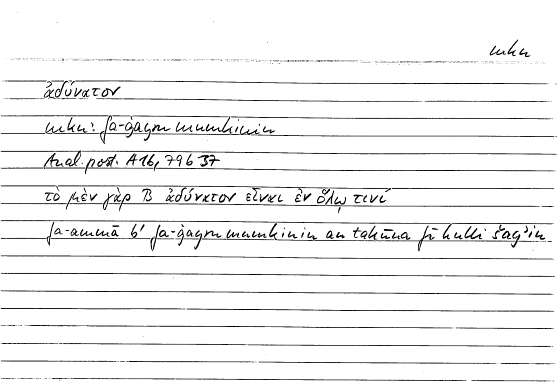 mkn
ἀδύνατον
mkn: fa-ġayru mumkinin
Anal. post. A 16, 79b 37
τὸ μὲν γὰρ Β ἀδύνατον εἶναι ἐν ὅλῳ τινί
fa-ammā b' fa-ġayru mumkinin an takūna fī kulli šay'in